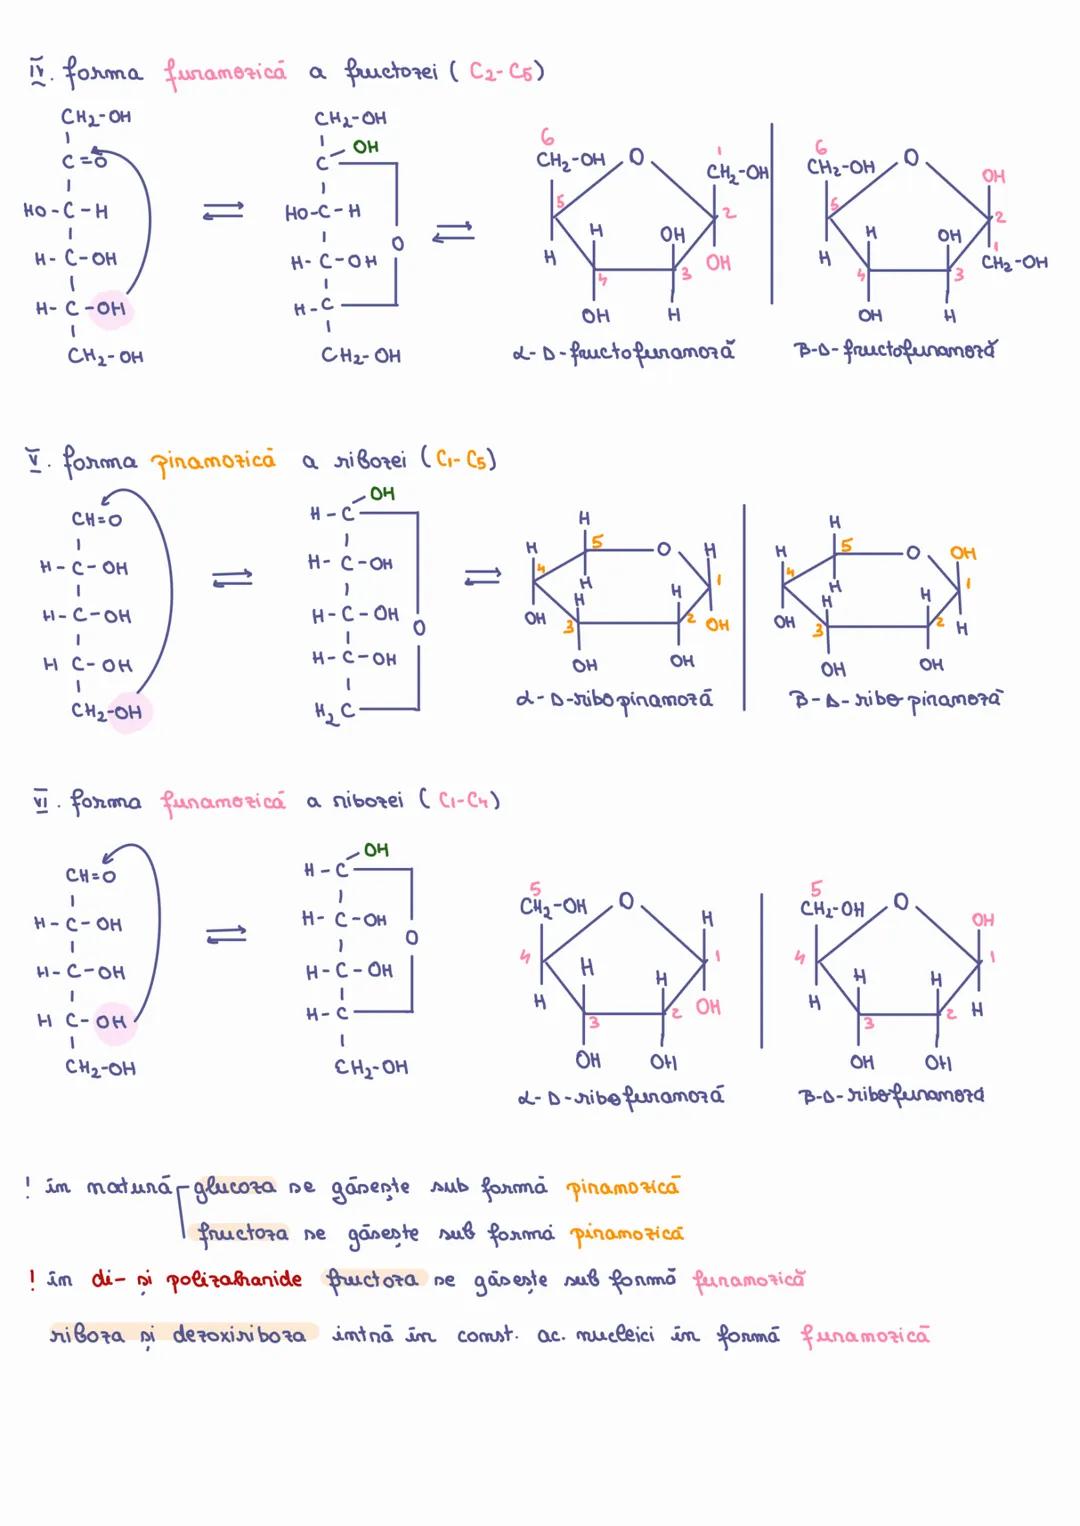 IV. forma furanozică a fructozei ( C2-C5)
CH2-OH
C=O
HO-C-H
H-C-OH
H-C-OH
CH2-OH
CH2-OH
OH
C
HO-C-H
H-C-OH
O
H-C
CH2-OH
6
CH2-OH O 1 CH2-OH
5 2
H H OH OH
4 3
OH H
α-D-fructofuranoză
6
CH2-OH O OH
5 2
H H OH 1 CH2-OH
4 3
OH H
β-D-fructofuranoză
V. forma piranozică a ribozei (C1-C5)
CH=O
H-C-OH
H-C-OH
H C-OH
CH2-OH
OH
H-C
H-C-OH
H-C-OH
O
H-C-OH
H2C
H
H 5 O H
4 H H 1
OH H 2 OH
3
OH OH
α-D-ribopiranoză
H
H 5 O OH
4 H H 1
OH H 2 H
3
OH OH
β-D-ribopiranoză
VI. forma furanozică a ribozei ( C1-C4)
CH=O
H-C-OH
H-C-OH
H C-OH
CH2-OH
OH
H-C
H-C-OH
O
H-C-OH
H-C
CH2-OH
5
CH2-OH O H
4 H H 1
H 3 2 OH
OH OH
α-D-ribofuranoză
5
CH2-OH O OH
4 H H 1
H 3 2 H
OH OH
β-D-ribofuranoză
! în natură glucoza se găsește sub formă piranozică
fructoza se găsește sub formă piranozică
! în di- și polizaharide fructoza se găsește sub formă furanozică
riboza și dezoxiriboza intră în const. ac. nucleici în formă furanozică